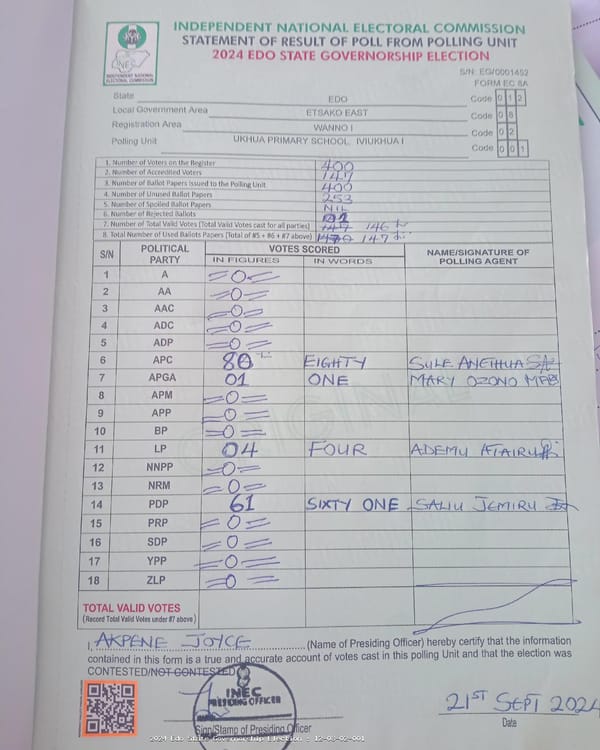 INDEPENDENT NATIONAL ELECTORAL COMMISSION
STATEMENT OF RESULT OF POLL FROM POLLING UNIT
2024 EDO STATE GOVERNORSHIP ELECTION
INEC
INDEPENDENT NATIONAL ELECTORAL COMMISSION
S/N: EG/0001452
FORM EC 8A
State EDO Code 0 1 2
Local Government Area ETSAKO EAST Code 0 8
Registration Area WANNO I Code 0 2
Polling Unit UKHUA PRIMARY SCHOOL, IVIUKHUA I Code 0 0 1
1. Number of Voters on the Register 400
2. Number of Accredited Voters 147
3. Number of Ballot Papers Issued to the Polling Unit 400
4. Number of Unused Ballot Papers 253
5. Number of Spoiled Ballot Papers NIL
6. Number of Rejected Ballots 01
7. Number of Total Valid Votes (Total Valid Votes cast for all parties) 147 146
8. Total Number of Used Ballots Papers (Total of #5 + #6 + #7 above) 147
S/N POLITICAL PARTY VOTES SCORED NAME/SIGNATURE OF POLLING AGENT
IN FIGURES IN WORDS
1 A =0=
2 AA =0=
3 AAC =0=
4 ADC =0=
5 ADP =0=
6 APC 80 EIGHTY SULE ANETHUA
7 APGA 01 ONE MARY OZONO
8 APM =0=
9 APP =0=
10 BP =0=
11 LP 04 FOUR ADEMU AFAIRU
12 NNPP =0=
13 NRM =0=
14 PDP 61 SIXTY ONE SALIU JEMIRU
15 PRP =0=
16 SDP =0=
17 YPP =0=
18 ZLP =0=
TOTAL VALID VOTES
(Record Total Valid Votes under #7 above)
I, AKPENE JOYCE (Name of Presiding Officer) hereby certify that the information
contained in this form is a true and accurate account of votes cast in this polling Unit and that the election was
CONTESTED/NOT CONTESTED
INEC
PRESIDING OFFICER
21ST SEPT 2024
Sign/Stamp of Presiding Officer Date
2024 Edo State Governorship Election - 12-08-02-001